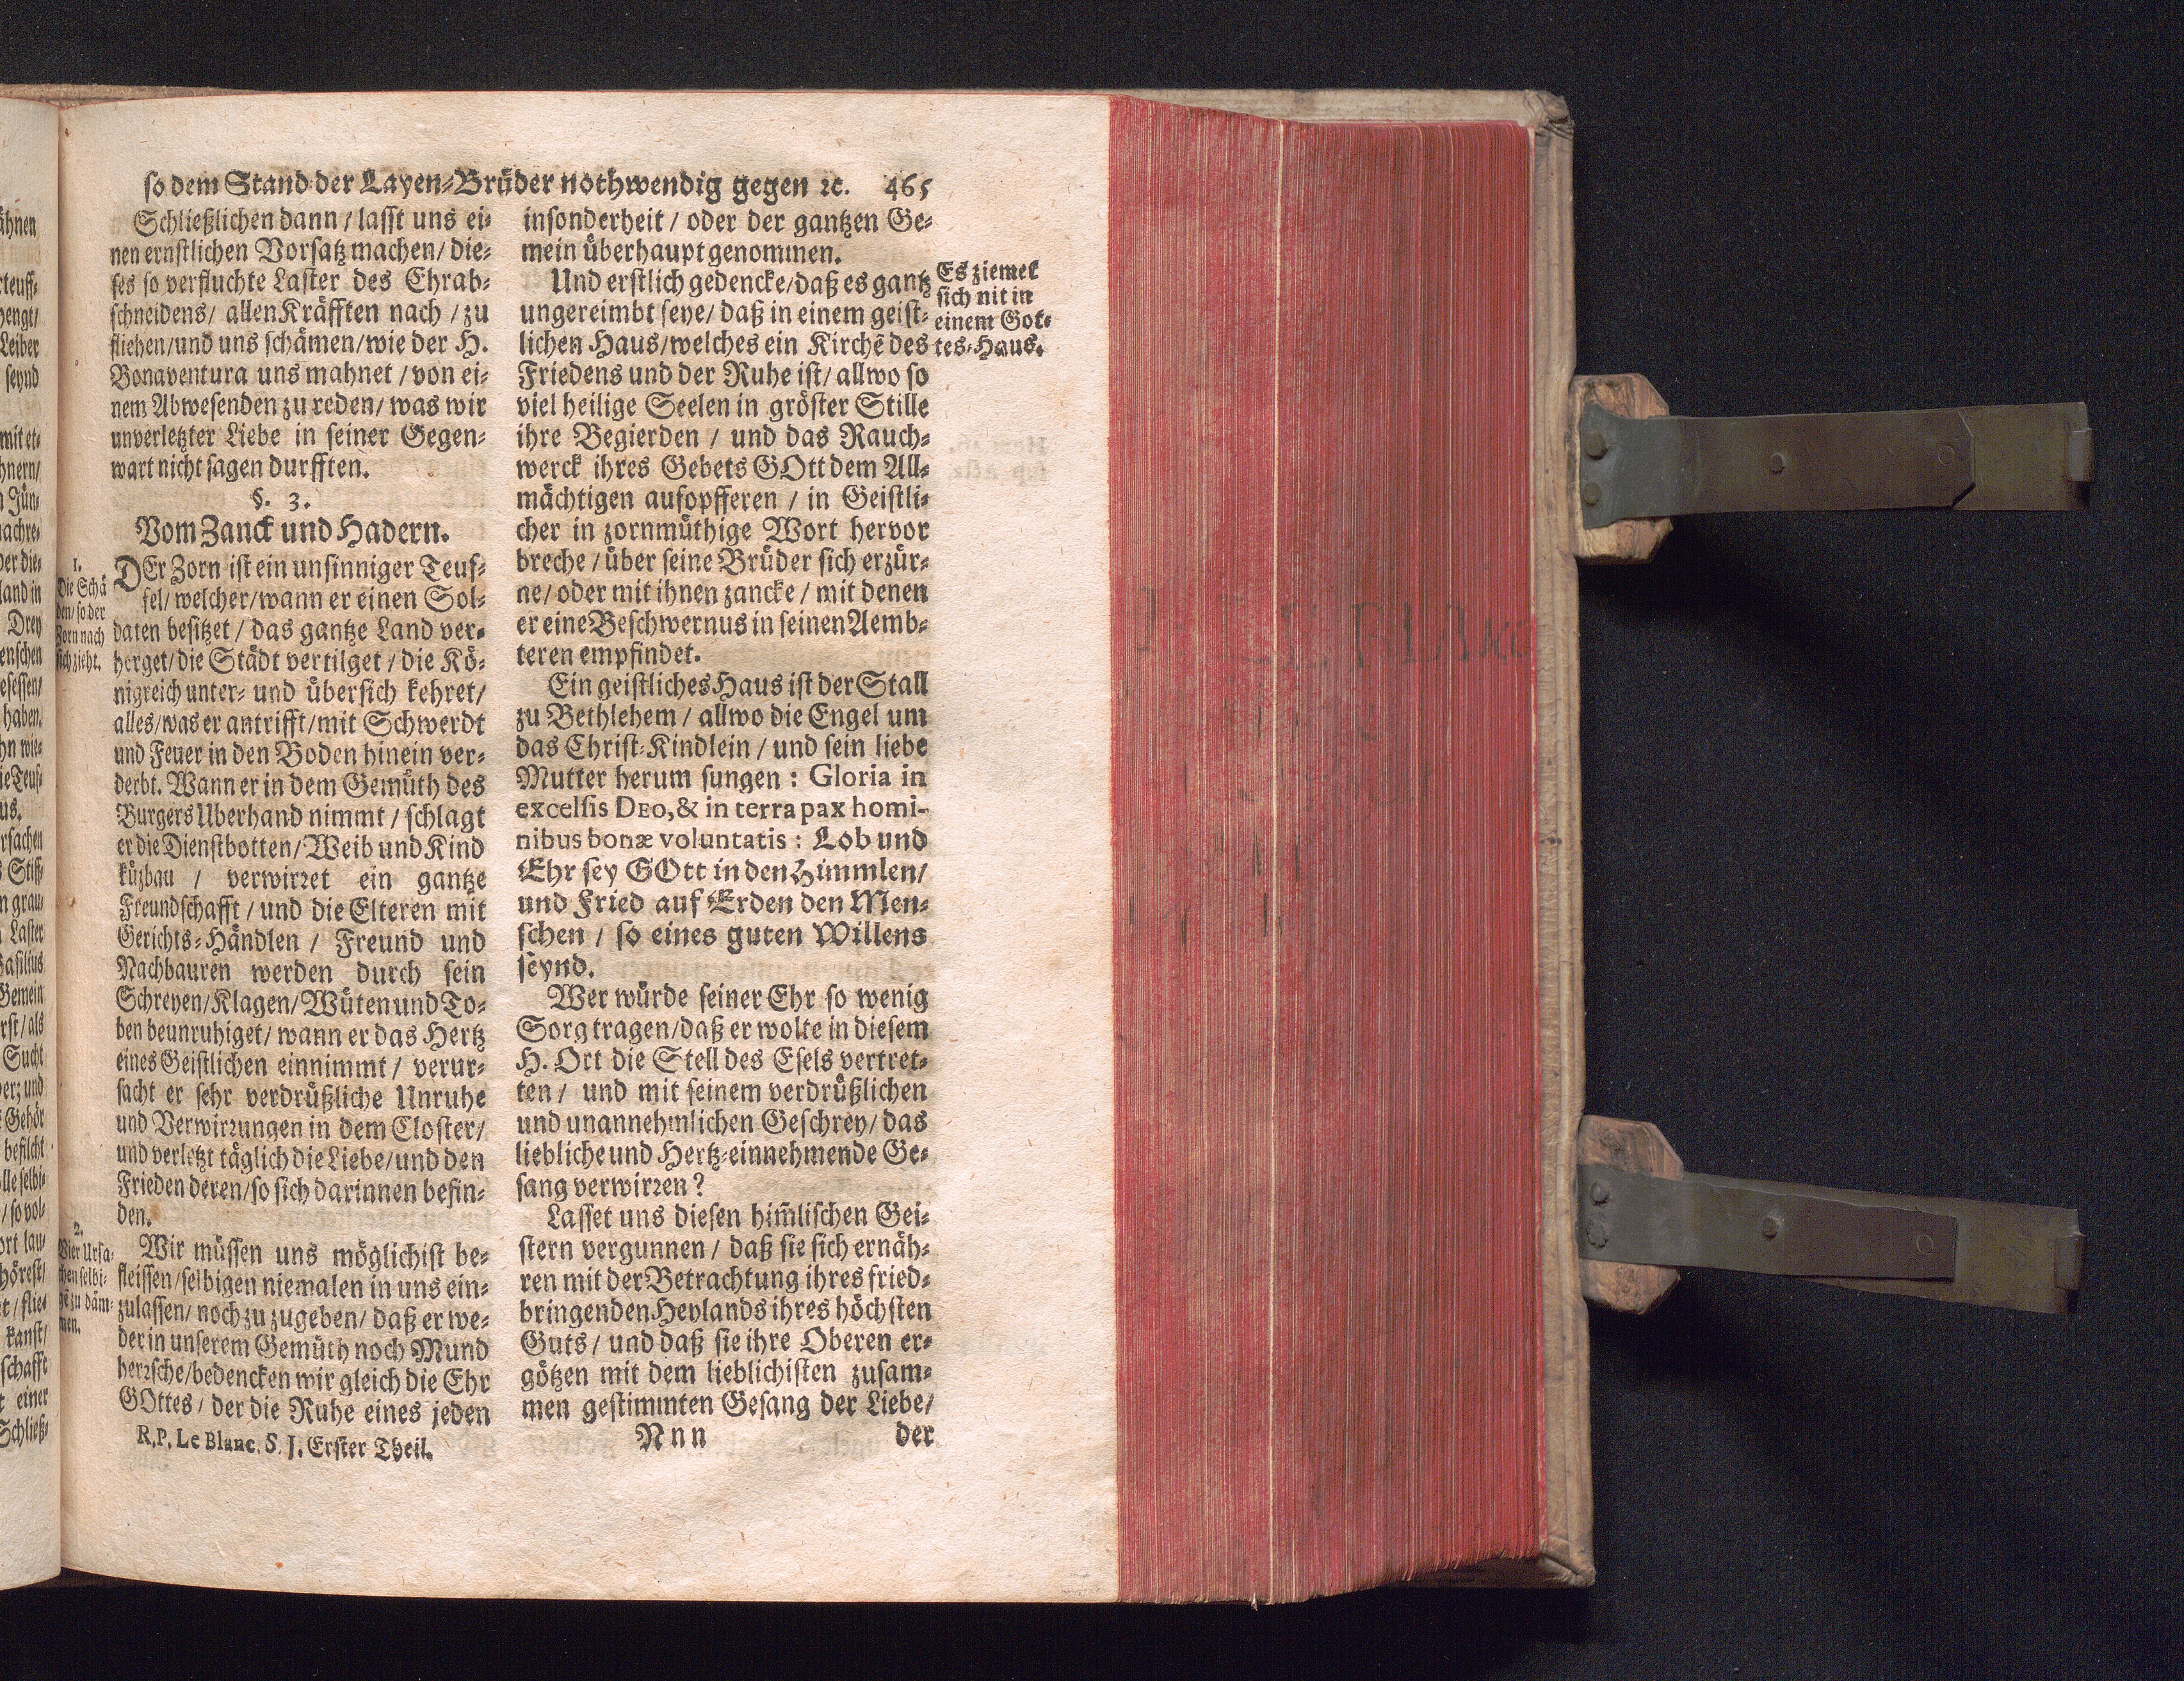 so dem Stand der Layen-Brüder nothwendig gegen ꝛc. 465
Schließlichen dann / lasst uns ei-
nen ernstlichen Vorsatz machen / die-
ses so verfluchte Laster des Ehrab-
schneidens / allen Kräfften nach / zu
fliehen / und uns schämen / wie der H.
Bonaventura uns mahnet / von ei-
nem Abwesenden zu reden / was wir
unverletzter Liebe in seiner Gegen-
wart nicht sagen durfften.
§. 3.
Vom Zanck und Hadern.
1.
Die Schä
den / so der
Zorn nach
sich zieht.
DEr Zorn ist ein unsinniger Teuf-
fel / welcher / wann er einen Sol-
daten besitzet / das gantze Land ver-
herget / die Städt vertilget / die Kö-
nigreich unter- und übersich kehret /
alles / was er antrifft / mit Schwerdt
und Feuer in den Boden hinein ver-
derbt. Wann er in dem Gemüth des
Burgers Uberhand nimmt / schlagt
er die Dienstbotten / Weib und Kind
küzbau / verwirret ein gantze
Freundschafft / und die Elteren mit
Gerichts-Händlen / Freund und
Nachbauren werden durch sein
Schreyen / Klagen / Wüten und To-
ben beunruhiget / wann er das Hertz
eines Geistlichen einnimmt / verur-
sacht er sehr verdrüßliche Unruhe
und Verwirrungen in dem Closter /
und verletzt täglich die Liebe / und den
Frieden deren / so sich darinnen befin-
den.
2.
Vier Ursa-
chen selbi-
ge zu däm-
men.
Wir müssen uns möglichist be-
fleissen / selbigen niemalen in uns ein-
zulassen / noch zu zugeben / daß er we-
der in unserem Gemüth noch Mund
herrsche / bedencken wir gleich die Ehr
GOttes / der die Ruhe eines jeden
R. P. Le Blanc. S. J. Erster Theil.
insonderheit / oder der gantzen Ge-
mein überhaupt genommen.
Und erstlich gedencke / daß es gantz
ungereimbt seye / daß in einem geist-
lichen Haus / welches ein Kirchē des
Friedens und der Ruhe ist / allwo so
viel heilige Seelen in gröster Stille
ihre Begierden / und das Rauch-
werck ihres Gebets GOtt dem All-
mächtigen aufopfferen / in Geistli-
cher in zornmüthige Wort hervor
breche / über seine Brüder sich erzür-
ne / oder mit ihnen zancke / mit denen
er eine Beschwernus in seinen Aemb-
teren empfindet.
Es ziemet
sich nit in
einem Got-
tes-Haus.
Ein geistliches Haus ist der Stall
zu Bethlehem / allwo die Engel um
das Christ-Kindlein / und sein liebe
Mutter herum sungen : Gloria in
excelsis DEO, & in terra pax homi-
nibus bonæ voluntatis : Lob und
Ehr sey GOtt in den Himmlen /
und Fried auf Erden den Men-
schen / so eines guten Willens
seynd.
Wer würde seiner Ehr so wenig
Sorg tragen / daß er wolte in diesem
H. Ort die Stell des Esels vertret-
ten / und mit seinem verdrüßlichen
und unannehmlichen Geschrey / das
liebliche und Hertz-einnehmende Ge-
sang verwirren ?
Lasset uns diesen him̄lischen Gei-
stern vergunnen / daß sie sich ernäh-
ren mit der Betrachtung ihres fried-
bringenden Heylands ihres höchsten
Guts / und daß sie ihre Oberen er-
götzen mit dem lieblichisten zusam-
men gestimmten Gesang der Liebe /
Nnn der